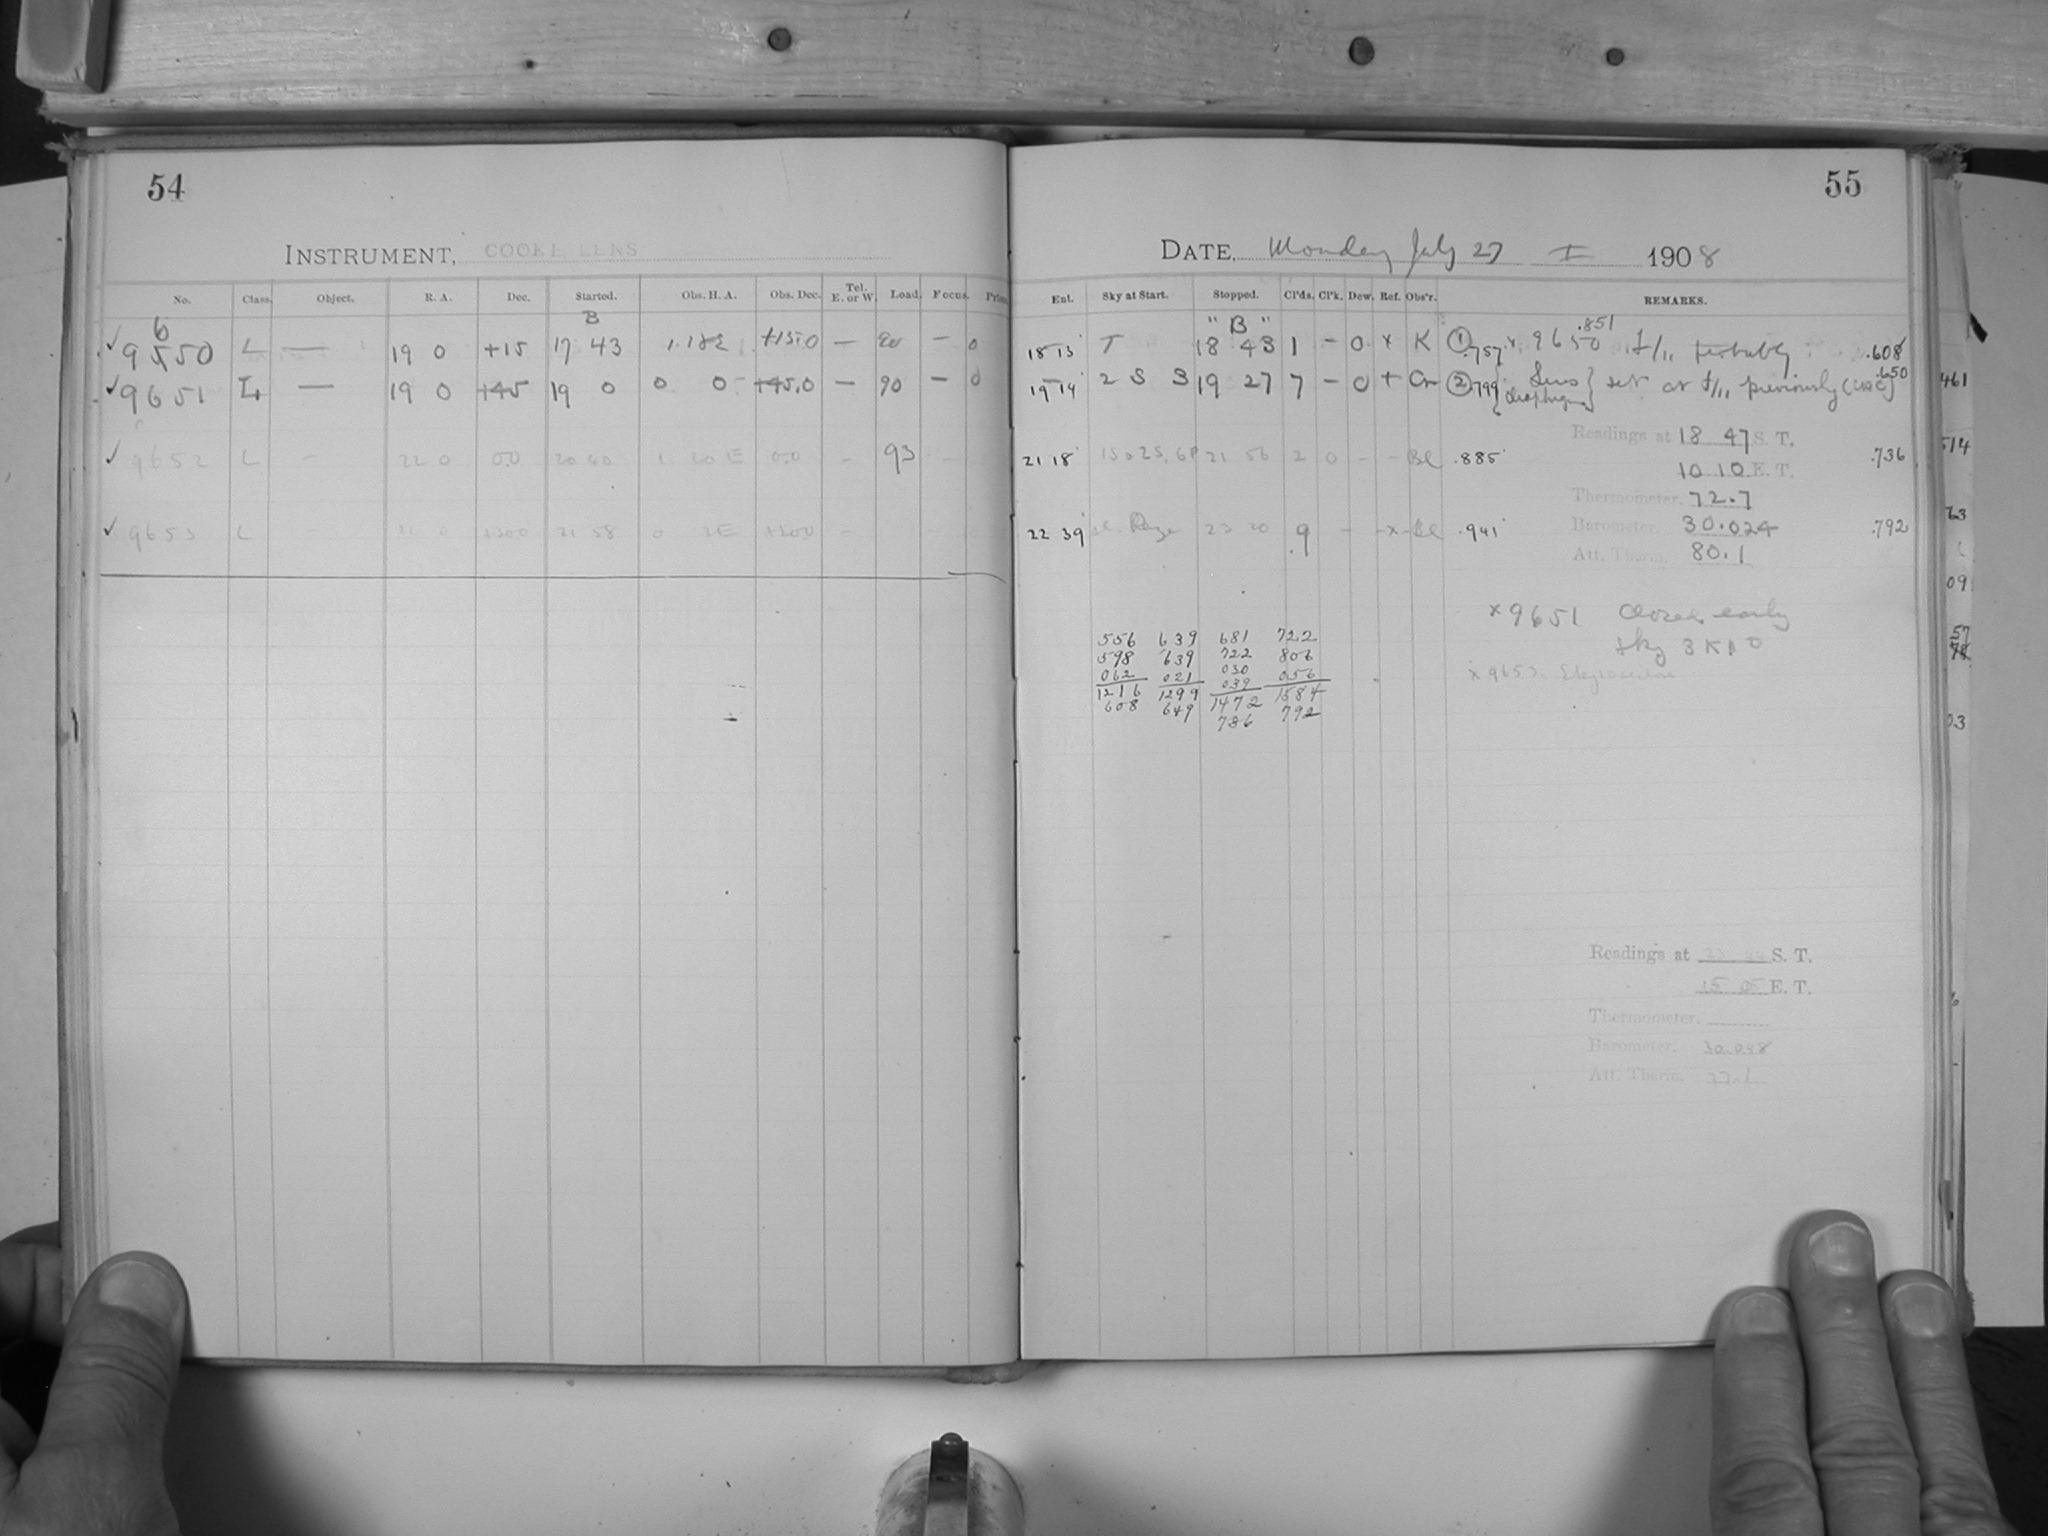 54
INSTRUMENT, COOKE LENS
No. Class. Object. R. A. Dec. Started. Obs. H. A. Obs. Dec. Tel. E. or W. Load. Focus.
B
6
✓ 9550 L — 19 0 +15 17 43 +15.0 — — 0
✓ 9651 L — 19 0 +45 19 0 0 0 +45.0 — 90 — 0
✓ 9652 L – 22 0 0.0 20 40 1 20 E 0.0 – 93
✓ 9653 L 0 2E –
55
DATE, Monday July 27 I 1908
Ent. Sky at Start. Stopped. Cl'ds. Cl'k. Dew. Ref. Obs'r. REMARKS.
" B " .851
18 13 T 18 43 1 – 0 x K ① .757 x 9650 f/11 probably .608
19 14 2 S S 19 27 7 – 0 + Cn ② .799 { Lens diaphragm } set at f/11 previously .650
461
Readings at 18 47 S. T.
21 18 21 56 2 0 – – Bl .885 .736
514
10 10 E. T.
Thermometer. 72.7
22 39 23 20 9 – – x – Bl .941 Barometer. 30.024 .792
63
Att. Therm. 80.1
09
x 9651 Closed early
Sky
x 9653
556 639 681 722
598 639 722 806
062 021 030 056
039
1216 1299 1472 1584
608 649 736 792
57
03
Readings at S. T.
E. T.
Thermometer.
Barometer. 30.048
Att. Therm.